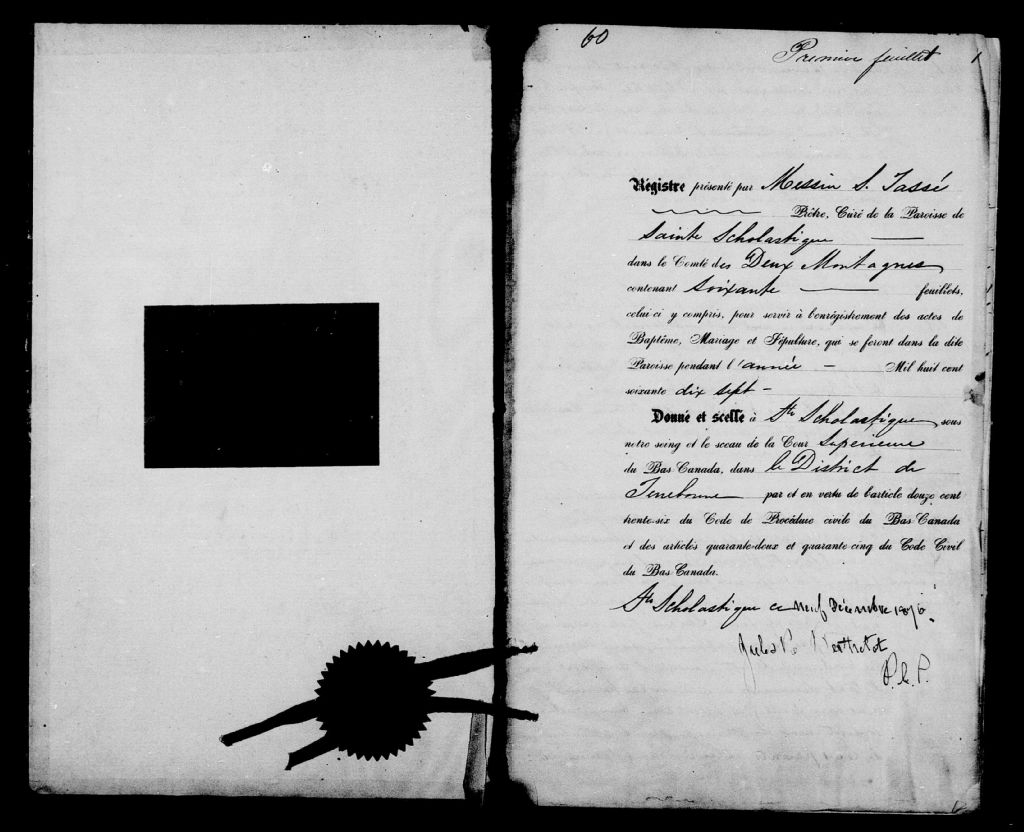 60
Premier feuillet 1
Régistre présenté par Messire S. Tassé
Prêtre, Curé de la Paroisse de
Sainte Scholastique
dans le Comté des Deux Montagnes
contenant Soixante feuillets,
celui-ci y compris, pour servir à l'enrégistrement des actes de
Baptême, Mariage et Sépulture, qui se feront dans la dite
Paroisse pendant l'année Mil huit cent
soixante dix sept
Donné et scellé à Ste Scholastique sous
notre seing et le sceau de la Cour Supérieure
du Bas-Canada, dans le District de
Terrebonne par et en vertu de l'article douze cent
trente-six du Code de Procédure civile du Bas-Canada
et des articles quarante-deux et quarante-cinq du Code Civil
du Bas-Canada.
Ste Scholastique ce neuf Décembre 1876
P.C.P.